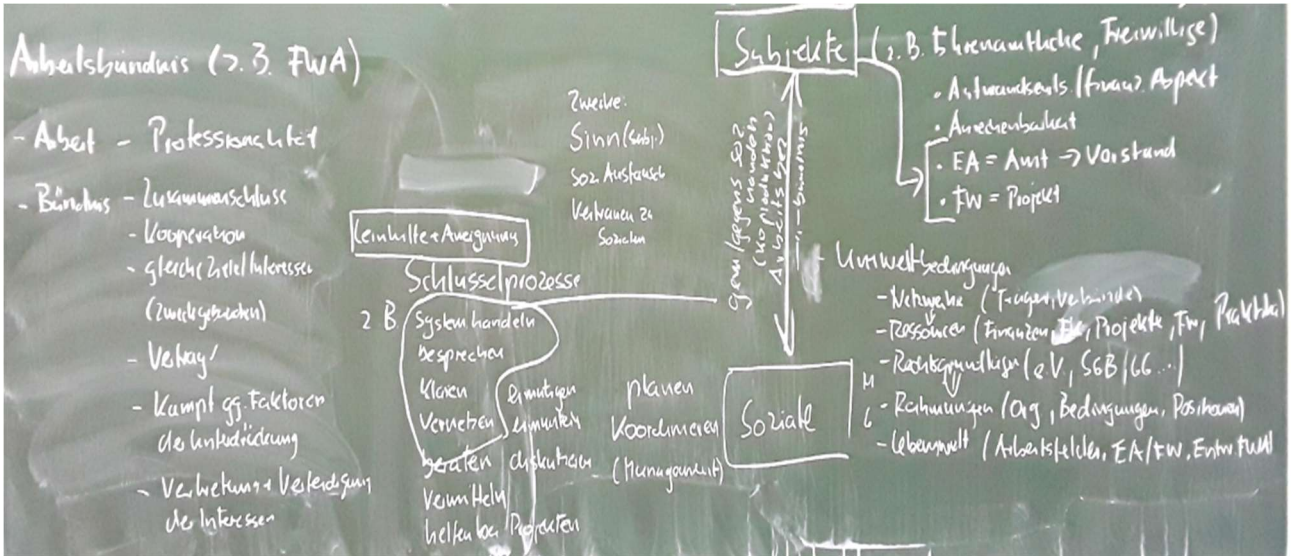 Arbeitsbündnis (z.B. FWA)
- Arbeit - Professionalität
- Bündnis - Zusammenschluss
- Kooperation
- gleiche Ziele/Interessen
(zweckgebunden)
- Vertrag/
- Kampf gg. Faktoren
der Unterdrückung
- Vertretung + Verteidigung
der Interessen
Zwecke:
Sinn (subj.)
soz. Austausch
Vertrauen zu
Sozialen
Lernhilfe + Aneignung
Schlüsselprozesse
z B.
System handeln
besprechen
klären
vernetzen
beraten
vermitteln
helfen bei Projekten
ermutigen
ermuntern
diskutieren
planen
koordinieren
(Management)
Subjekte (z.B. Ehrenamtliche, Freiwillige)
• Aufwandsents./finanz. Aspekt
• Anrechenbarkeit
• EA = Amt → Vorstand
• FW = Projekt
gem/gegens soz
handeln
(Koproduktion)
Arbeitsbez
- bündnis
Soziale
- Umweltbedingungen
- Netzwerke (Träger, Verbände)
- Ressourcen (Finanzen, Projekte, FW, Praktika)
- Rechtsgrundlagen (eV, SGB/GG ...)
- Rahmungen (Org, Bedingungen, Positionen)
- Lebenswelt (Arbeitsfelder, EA/FW,